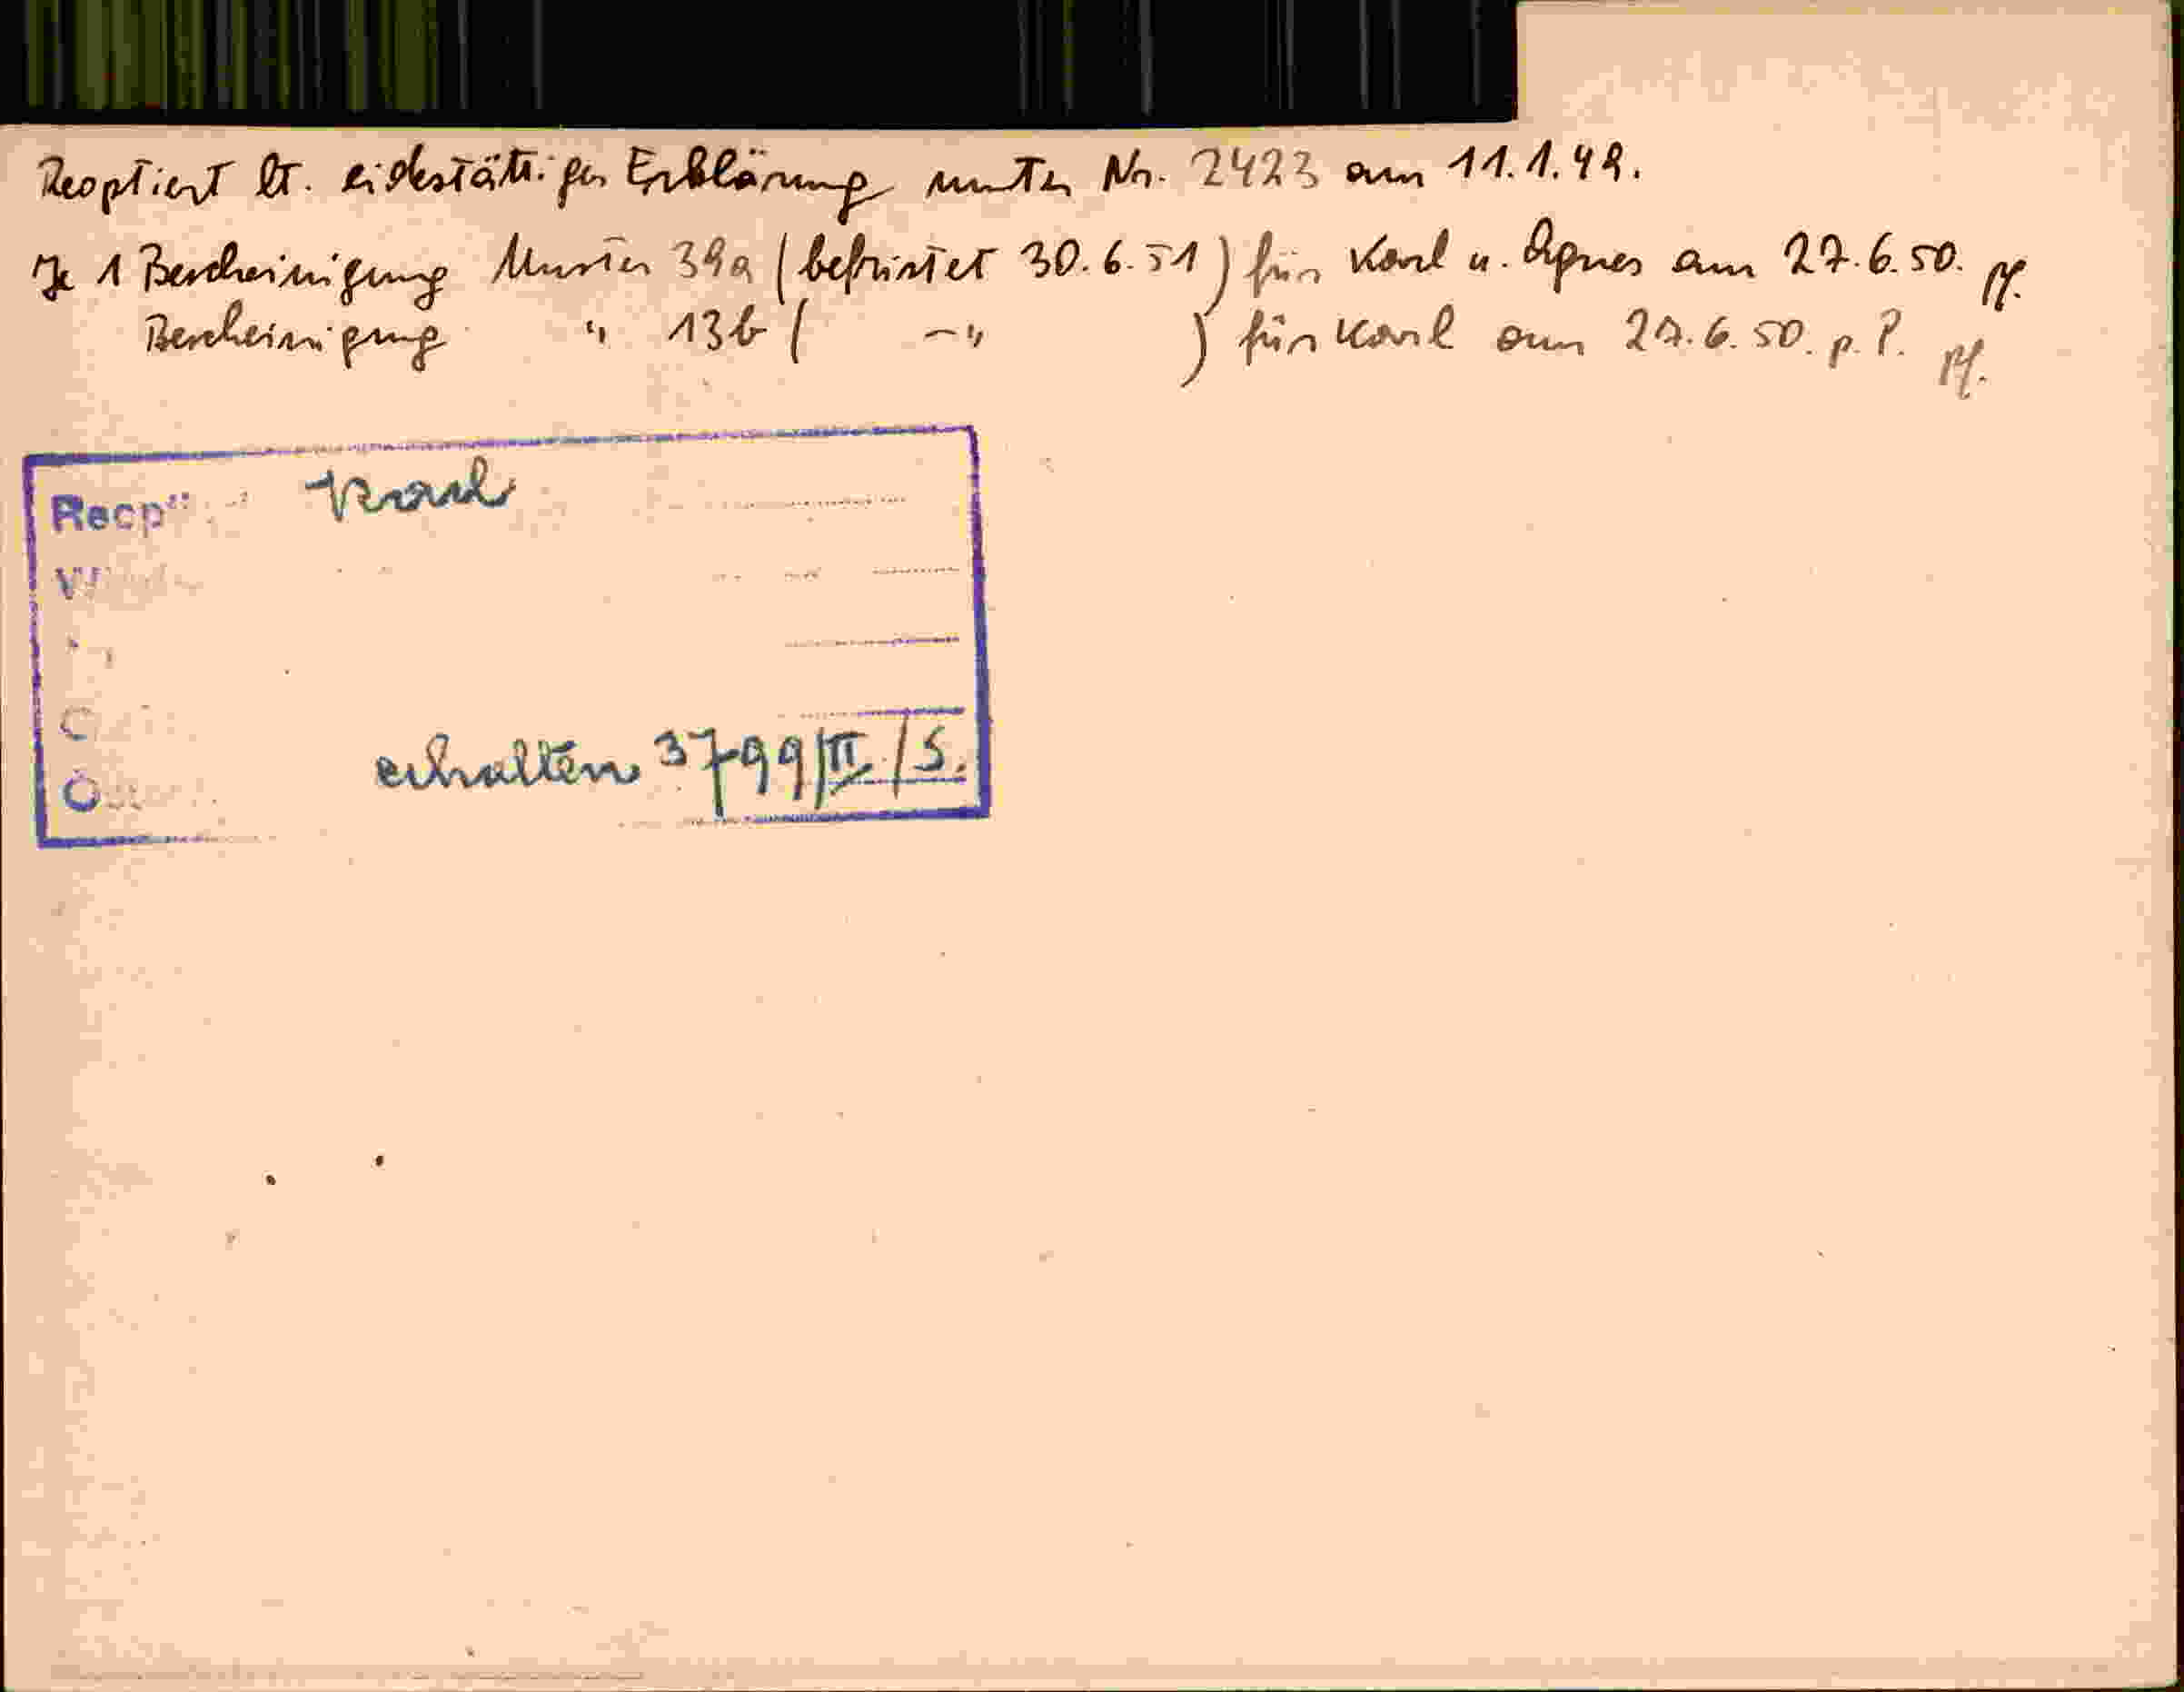 Reoptiert lt. eidestättiger Erklärung unter Nr. 2423 am 11.1.49.
Je 1 Bescheinigung Muster 39a (befristet 30.6.51) für Karl u. Agnes am 27.6.50.
Bescheinigung " 13b ( -" ) für Karl am 27.6.50. p. P.
Karl
erhalten 3799/II/S.